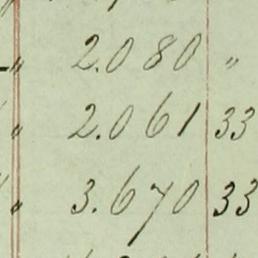 " 2.080 "
" 2.061 33
" 3.670 33